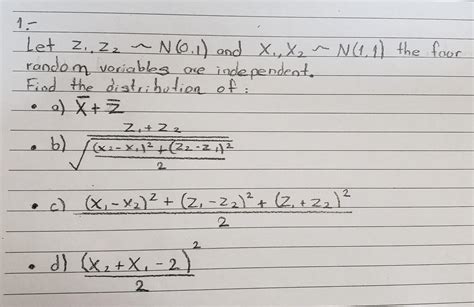 1.-
Let Z₁, Z₂ ~ N(0,1) and X₁, X₂ ~ N(1,1) the four
random variables are independent.
Find the distribution of :
• a) X̅ + Z̅
• b) (Z₁ + Z₂) / √(((X₂ - X₁)² + (Z₂ - Z₁)²) / 2)
• c) ((X₁ - X₂)² + (Z₁ - Z₂)² + (Z₁ + Z₂)²) / 2
• d) (X₂ + X₁ - 2)² / 2